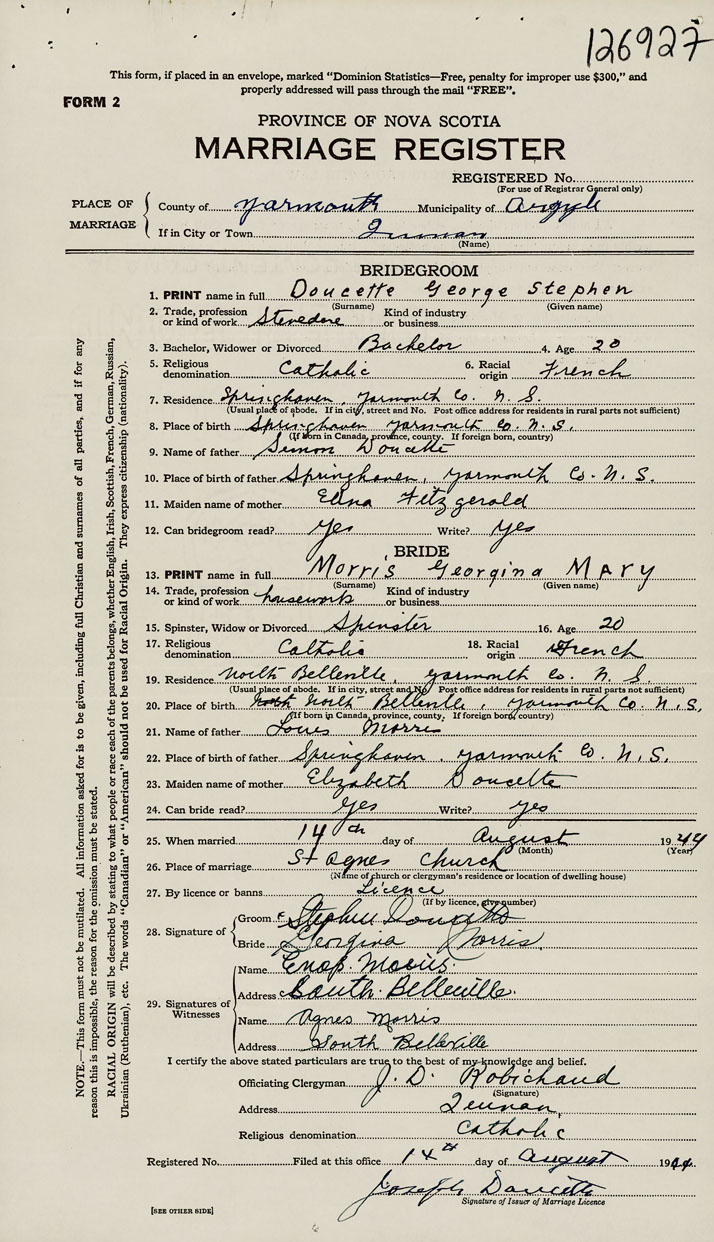 126927
This form, if placed in an envelope, marked "Dominion Statistics—Free, penalty for improper use $300," and
properly addressed will pass through the mail "FREE".
FORM 2
PROVINCE OF NOVA SCOTIA
MARRIAGE REGISTER
REGISTERED No.
(For use of Registrar General only)
PLACE OF MARRIAGE
County of Yarmouth Municipality of Argyle
If in City or Town
(Name)
BRIDEGROOM
1. PRINT name in full Doucette George Stephen
(Surname) (Given name)
2. Trade, profession or kind of work Stevedore Kind of industry or business
3. Bachelor, Widower or Divorced Bachelor 4. Age 20
5. Religious denomination Catholic 6. Racial origin French
7. Residence Springhaven, Yarmouth Co. N. S.
(Usual place of abode. If in city, street and No. Post office address for residents in rural parts not sufficient)
8. Place of birth Springhaven Yarmouth Co. N. S.
(If born in Canada, province, county. If foreign born, country)
9. Name of father Simon Doucette
10. Place of birth of father Springhaven, Yarmouth Co. N. S.
11. Maiden name of mother Fitzgerald
12. Can bridegroom read? Yes Write? Yes
BRIDE
13. PRINT name in full Morris Georgina Mary
(Surname) (Given name)
14. Trade, profession or kind of work housework Kind of industry or business
15. Spinster, Widow or Divorced Spinster 16. Age 20
17. Religious denomination Catholic 18. Racial origin French
19. Residence North Belleville, Yarmouth Co. N. S.
(Usual place of abode. If in city, street and No. Post office address for residents in rural parts not sufficient)
20. Place of birth North Belleville, Yarmouth Co. N. S.
(If born in Canada, province, county. If foreign born, country)
21. Name of father Louis Morris
22. Place of birth of father Springhaven, Yarmouth Co. N. S.
23. Maiden name of mother Elizabeth Doucette
24. Can bride read? Yes Write? Yes
25. When married 14th day of August 1944
(Month) (Year)
26. Place of marriage St Agnes Church
(Name of church or clergyman's residence or location of dwelling house)
27. By licence or banns Licence
(If by licence, give number)
28. Signature of
Groom Stephen Doucette
Bride Georgina Morris
29. Signatures of Witnesses
Name
Address South Belleville.
Name Agnes Morris
Address South Belleville
I certify the above stated particulars are true to the best of my knowledge and belief.
Officiating Clergyman J. D. Robichaud
(Signature)
Address
Religious denomination Catholic
Registered No. Filed at this office 14th day of August 1944
Joseph Doucette
Signature of Issuer of Marriage Licence
[SEE OTHER SIDE]
NOTE.—This form must not be mutilated. All information asked for is to be given, including full Christian and surnames of all parties, and if for any
reason this is impossible, the reason for the omission must be stated.
RACIAL ORIGIN will be described by stating to what people or race each of the parents belongs, whether English, Irish, Scottish, French, German, Russian,
Ukrainian (Ruthenian), etc. The words "Canadian" or "American" should not be used for Racial Origin. They express citizenship (nationality).